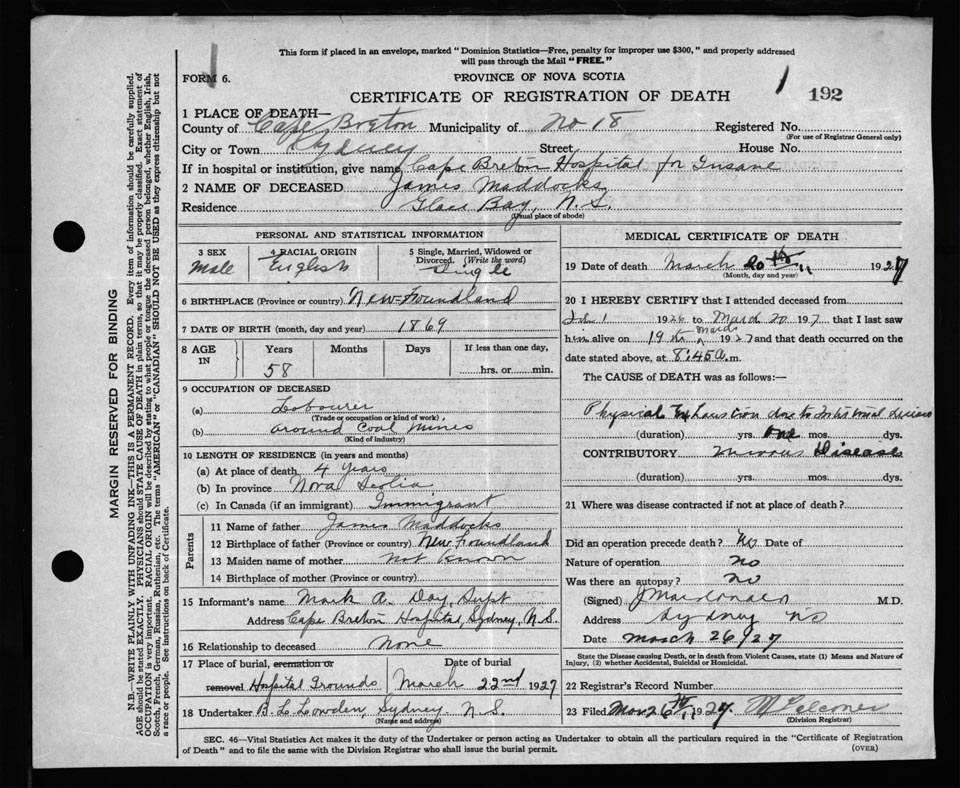 This form if placed in an envelope, marked "Dominion Statistics—Free, penalty for improper use $300," and properly addressed
will pass through the Mail "FREE."
FORM 6.
PROVINCE OF NOVA SCOTIA
CERTIFICATE OF REGISTRATION OF DEATH
192
1 PLACE OF DEATH—
County of Cape Breton Municipality of No 18 Registered No.
(For use of Registrar General only)
City or Town Sydney Street House No.
If in hospital or institution, give name Cape Breton Hospital for Insane
2 NAME OF DECEASED James Maddocks
Residence Glace Bay, N.S.
(Usual place of abode)
PERSONAL AND STATISTICAL INFORMATION
3 SEX Male
4 RACIAL ORIGIN English
5 Single, Married, Widowed or
Divorced. (Write the word)
Single
6 BIRTHPLACE (Province or country) New-Foundland
7 DATE OF BIRTH (month, day and year) 1869
8 AGE IN
Years Months Days If less than one day,
58 hrs. or min.
9 OCCUPATION OF DECEASED
(a) Labourer
(Trade or occupation or kind of work)
(b) around Coal Mines
(Kind of industry)
10 LENGTH OF RESIDENCE (in years and months)
(a) At place of death 4 Years
(b) In province Nova Scotia
(c) In Canada (if an immigrant) Immigrant
Parents
11 Name of father James Maddocks
12 Birthplace of father (Province or country) New Foundland
13 Maiden name of mother Not Known
14 Birthplace of mother (Province or country)
15 Informant's name Mark A. Day, Supt
Address Cape Breton Hospital, Sydney, N.S.
16 Relationship to deceased None
17 Place of burial, cremation or Date of burial
removal Hospital Grounds March 22nd 1927
18 Undertaker B. L. Lowden, Sydney N.S.
(Name and address)
MEDICAL CERTIFICATE OF DEATH
19 Date of death March 20th 1927
(Month, day and year)
20 I HEREBY CERTIFY that I attended deceased from
1 1926 to March 20 1927, that I last saw
him alive on 19th March 1927 and that death occurred on the
date stated above, at 8:45 a.m.
The CAUSE of DEATH was as follows:—
Physical Exhaustion due to
(duration) yrs. one mos. dys.
CONTRIBUTORY Disease
(duration) yrs. mos. dys.
21 Where was disease contracted if not at place of death?
Did an operation precede death? No Date of
Nature of operation no
Was there an autopsy? no
(Signed) J Macdonald M.D.
Address Sydney NS
Date March 26/27
State the Disease Causing Death, or in death from Violent Causes, state (1) Means and Nature of
Injury, (2) whether Accidental, Suicidal or Homicidal.
22 Registrar's Record Number
23 Filed Mar 26th 1927 M Falconer
(Division Registrar)
SEC. 46—Vital Statistics Act makes it the duty of the Undertaker or person acting as Undertaker to obtain all the particulars required in the "Certificate of Registration
of Death" and to file the same with the Division Registrar who shall issue the burial permit. (OVER)
MARGIN RESERVED FOR BINDING
N.B.—WRITE PLAINLY WITH UNFADING INK—THIS IS A PERMANENT RECORD. Every item of information should be carefully supplied.
AGE should be stated EXACTLY. PHYSICIANS should STATE CAUSE OF DEATH in plain terms, so that it may be properly classified. Exact statement of
OCCUPATION is very important. RACIAL ORIGIN will be described by stating to what people or tongue the deceased person belonged, whether English, Irish,
Scotch, French, German, Russian, Ruthenian, etc. The terms "AMERICAN" or "CANADIAN" SHOULD NOT BE USED as they express citizenship but not
a race or people. See instructions on back of Certificate.